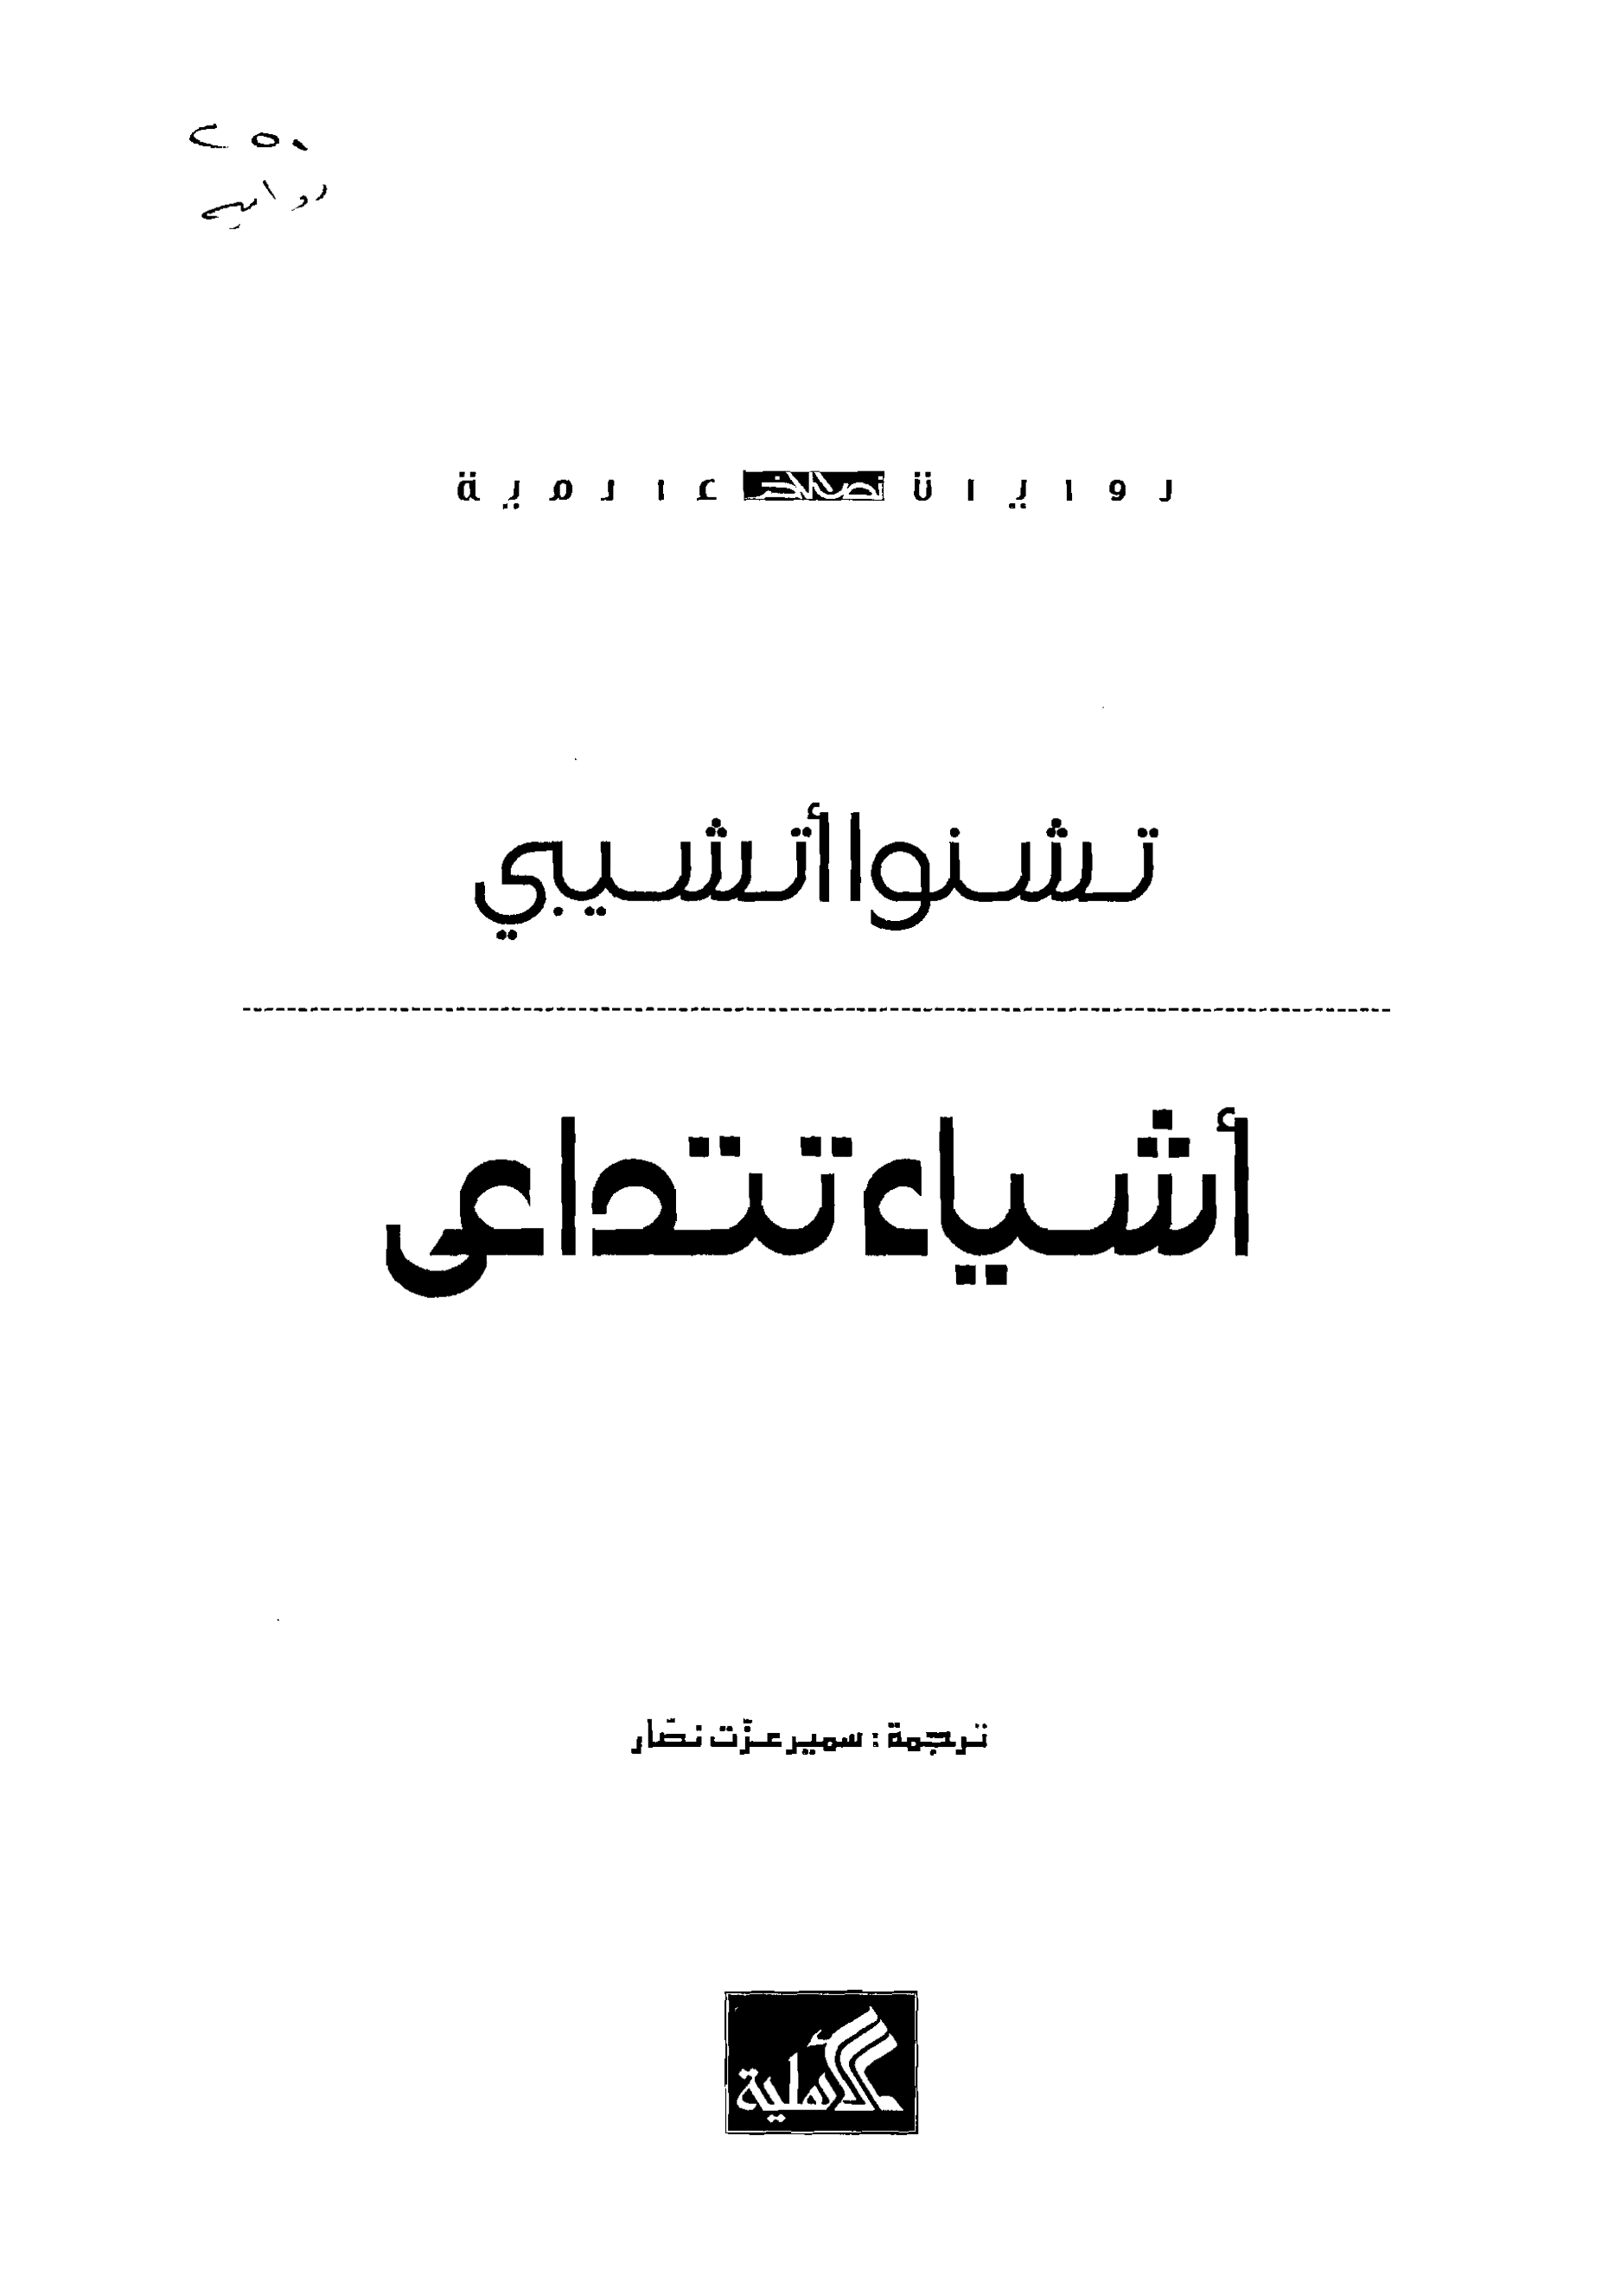 ٢٥٠
رواية
روايات عالمية
تشنوا أتشيبي
أشياء تتداعى
ترجمة : سمير عزّت نصّار
الأهلية